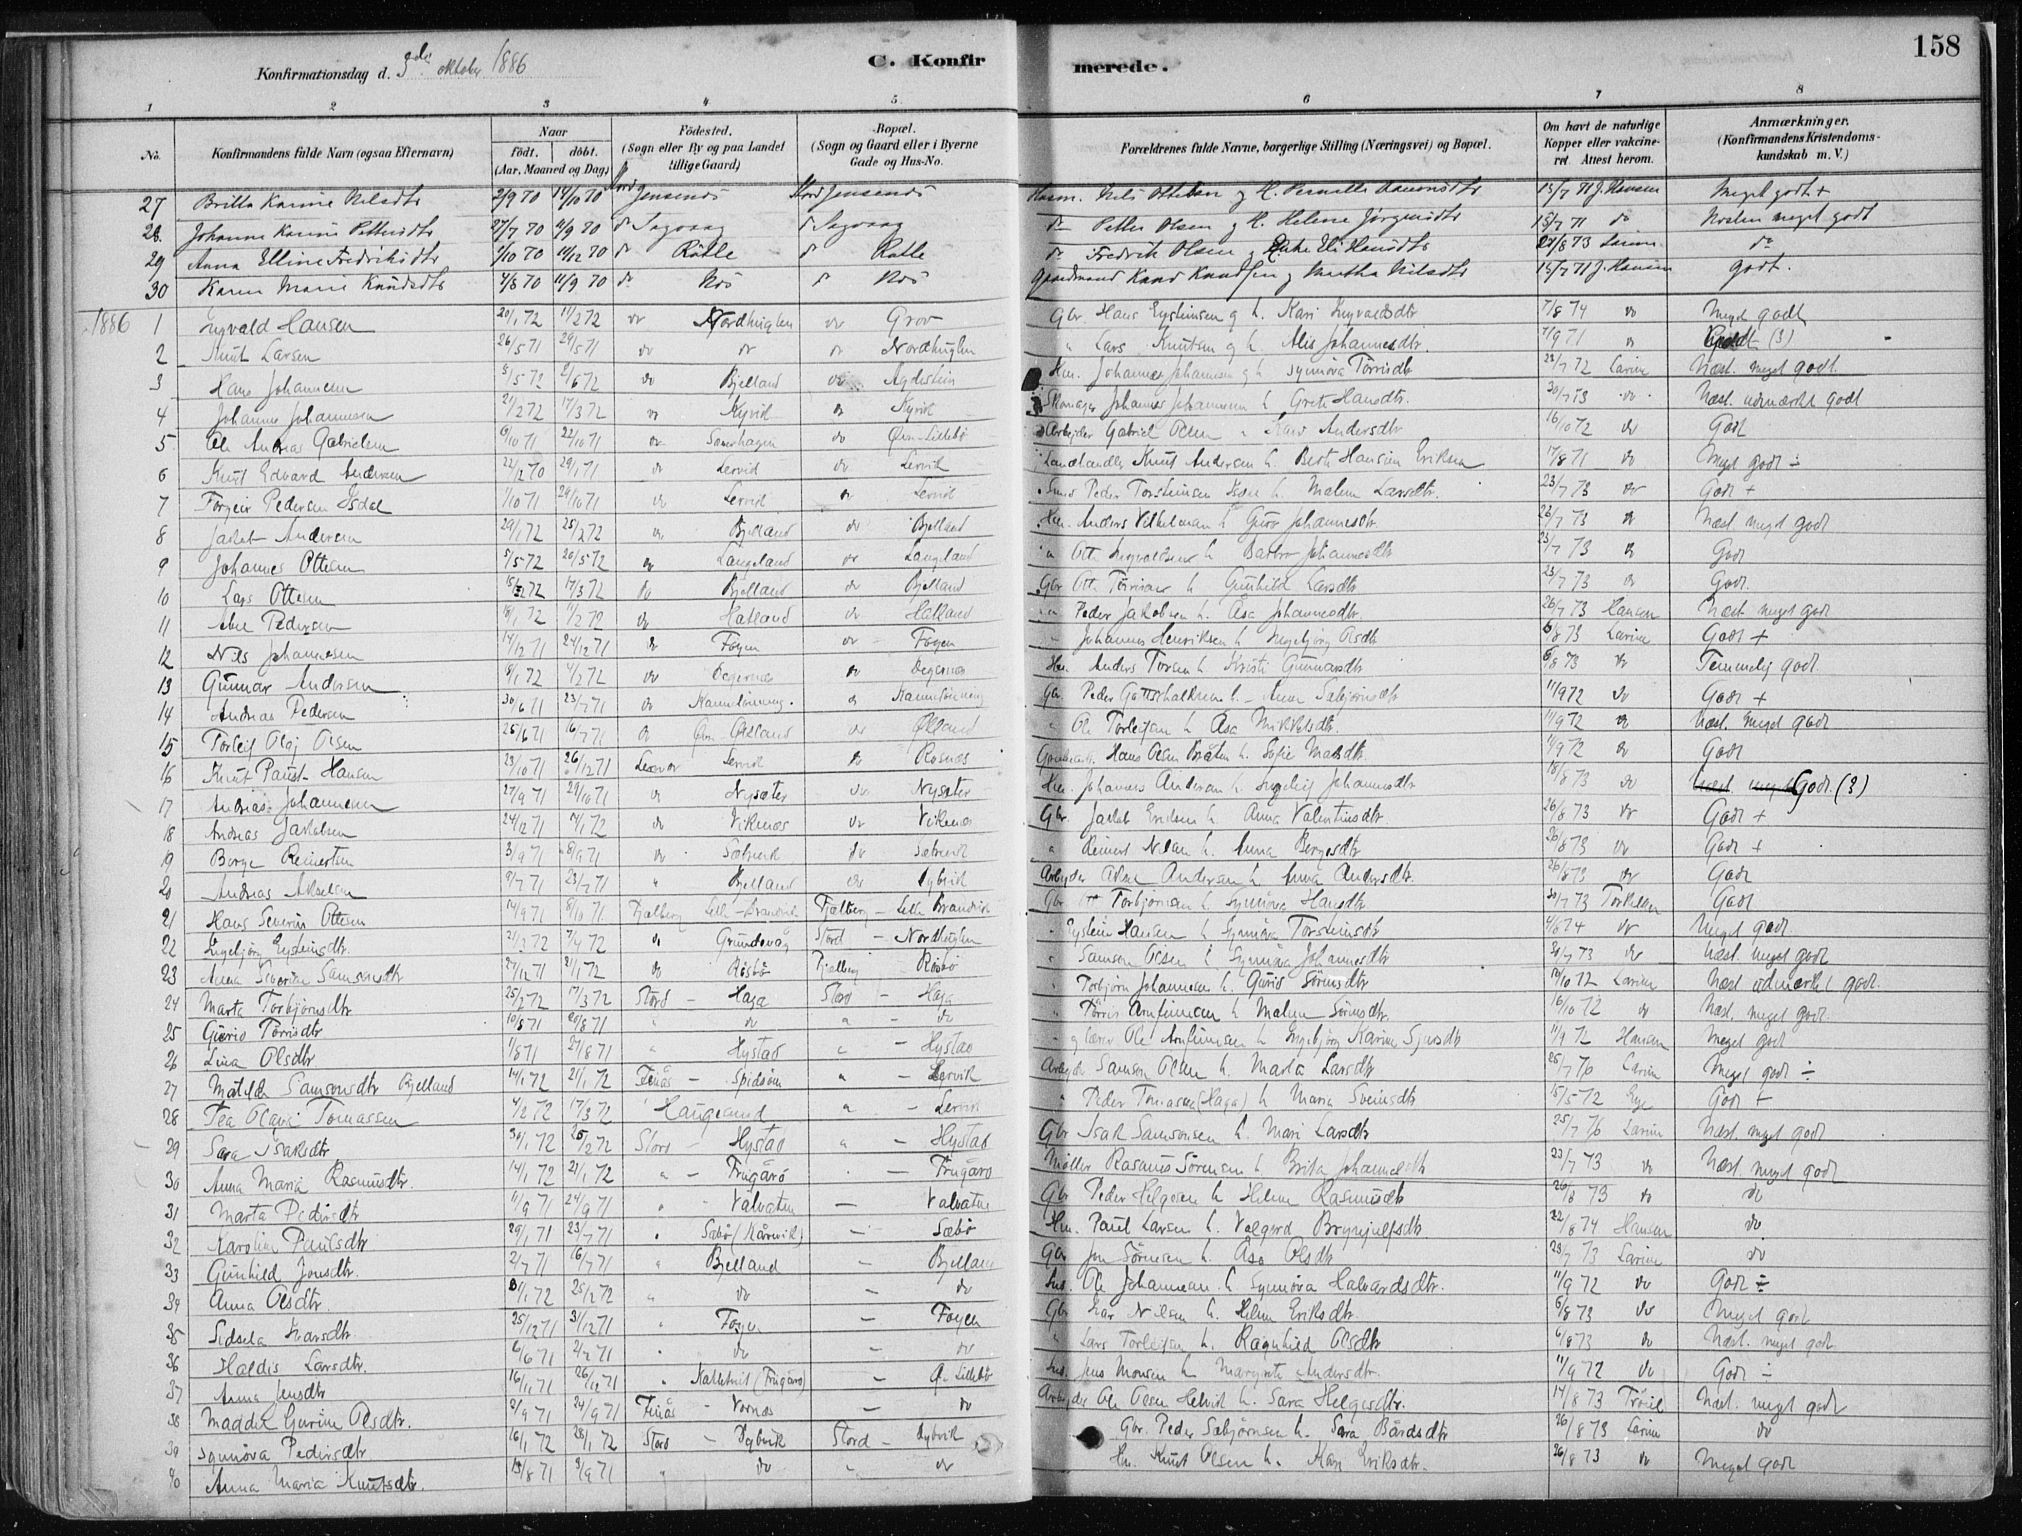 158
Konfirmationsdag d. 3die oktober 1886
C. Konfirmerede.
1 2 3 4 5 6 7 8
No. Konfirmandens fulde Navn (ogsaa Efternavn) Naar født. døbt. (Aar, Maaned og Dag) Fødested. (Sogn eller By og paa Landet tillige Gaard) Bopæl. (Sogn og Gaard eller i Byerne Gade og Hus-No. Forældrenes fulde Navne, borgerlige Stilling (Næringsvei) og Bopæl. Om havt de naturlige Kopper eller vakcineret. Attest herom. Anmærkninger. (Konfirmandens Kristendomskundskab m. V.)
27 Britta Karine Nilsdtr 2/9 70 14/10 70 Stord Jensenes Stord Jensenes Husm. Nils Ottesen og H. Pernille 15/7 71 J. Hansen Meget godt +
28. Johanne Karine Pettersdtr 27/7 70 11/9 70 do Sagvaag do Sagvaag do Petter Olsen og H. Helene Jørgensdtr 15/7 71 do Næsten meget godt
29 Anna Elline Fredriksdtr 1/10 70 11/12 70 do Røtle do Røtle do Fredrik Olsen og Enke Eli Hansdtr 27/8 73 Larim do
30 Karen Marie Knudsdtr 4/8 70 11/9 70 do Nøs do Nøs Gaardmand Knud Knudsen og Martha Nilsdtr 15/7 71 J. Hansen godt.
1886 1 Ingvald Hansen 20/1 72 11/2 72 do Nordhuglen do Grov Gbr Hans Eysteinsen og h. Kari Ingvaldsdtr 7/8 74 do Meget godt
2 Knut Larsen 26/5 71 29/5 71 do do do Nordhuglen " Lars Knutsen og h. Alis Johannesdtr. 7/9 71 do Godt (3)
3 Hans Johannesen 8/5 72 2/6 72 do Bjelland do Agdestein Hm. Johannes Johannesen og h. Synnöva Törrisdtr 23/7 72 Larim Næst. meget godt.
4 Johannes Johannesen 21/2 72 17/3 72 do Kyvik do Kyvik Skomager Johannes Johannesen h. Grete Hansdtr. 30/7 73 do Næst. udmærket godt
5 Ole Andreas Gabrielsen 6/10 71 22/10 71 do Sauerhagen do Øvre-Lillebø Arbejder Gabriel Olsen " Andersdtr 16/10 72 do Godt
6 Knut Edvard Andersen 22/12 70 29/1 71 do Lervik do Lervik Landhandler Knut Andersen h. Berte Hansine Eriksen 17/8 71 do Meget godt ÷
7 Torgeir Pedersen Isdal 1/10 71 29/10 71 do Lervik do Lervik Smed Peder Torsteinsen h. Malene Larsdtr. 23/7 73 do Godt +
8 Jakob Andersen 29/1 72 25/2 72 do Bjelland do Bjelland Hm. Anders Vilhelmsen h. Guro Johannesdtr. 22/7 73 do Næst. meget godt
9 Johannes Ottesen 5/5 72 20/5 72 do Langeland do Langeland " Otte Ingvaldsen h. Barbro Johannesdtr 23/7 73 do Godt
10 Lars Ottesen 15/2 72 17/3 72 do Bjelland do Bjelland Gbr Otte Törrisen h. Gunhild Larsdtr 23/7 73 do Godt
11 Abel Pedersen 18/1 72 11/2 72 do Hatland do Hatland " Peder Jakobsen h. Åsa Johannesdtr. 26/7 73 Hansen Næst. meget godt
12 Nils Johannesen 14/12 71 24/12 71 do Føyen do Føyen " Johannes Henriksen h. Ingebjørg Olsdtr 6/8 73 Larim Godt +
13 Gunnar Andersen 8/1 72 4/2 72 do Degernes do Degernes Hm. Anders Torsen h. Kristi Gunnarsdtr 6/8 73 do Temmelig godt
14 Andreas Pedersen 30/6 71 23/7 71 do Nanneløning. do Nanneløning Gbr. Peder Gottschalksen h. Anna Sæbjørnsdtr 11/9 72 do Godt +
15 Torleif Olaj Olsen 25/6 71 16/7 71 do Øvre-Øktland do Økland " Ole Torleifsen h. Åsa Mikkelsdtr. 11/9 72 do Næst. meget godt
16 Knut Paust Hansen 23/10 71 26/12 71 do Lervik do Rosnes Hans Olsen Bråten h. Sofie Matsdtr 11/9 72 do Godt
17 Andreas Johannesen 27/9 71 29/10 71 do Nysæter do Nysæter Hm. Johannes Andersen h. Ingeleif Johannesdtr 18/8 73 do Godt (3)
18 Andreas Jakobsen 24/12 71 7/1 72 do Vikenes do Vikenes Gbr. Jakob Eriksen h. Anna Valentinsdtr. 26/8 73 do Godt +
19 Børge Reinertsen 3/9 71 8/9 71 do Sætrevik do Sætrevik " Reinert Nilsen h. Anna Børgesdtr 26/8 73 do Godt +
20 Andreas Akselsen 9/7 71 23/7 71 " Bjelland do Dybvik Arbejder Aksel Andersen h. Anna Andersdtr. 26/8 73 do Godt
21 Hans Severin Ottesen 14/9 71 8/10 71 Fjelberg Lille-Brandvik Fjelberg - Lille Brandvik Gbr Otte Torbjørnsen h. Synnöva Hansdtr 30/7 73 Torkelsen Godt
22 Ingebjörg Eysteinsdtr. 21/3 72 7/4 72 do Grundevåg Stord - Nordhuglen " Eystein Hansen h Synnöva Torsteinsdtr 4/8 74 do Meget godt.
23 Anna Severine Samsonsdtr 27/12 71 21/1 72 do Røsbø Fjelberg - Røsbø " Samson Olsen h Synnöva Johannesdtr 30/7 73 do Næst. meget godt
24 Marta Torbjörnsdtr 25/2 72 17/3 72 Stord - Haga Stord - Haga " Torbjörn Johannesen h. Guro Sörensdtr 10/10 72 Larim Næst udmærket godt.
25 Gurid Törrisdtr 10/8 71 20/8 71 " do " do " Törris Arnfinnsen h Malena Sörensdtr. 16/10 72 do Næst. meget godt
26 Lina Olsdtr 1/8 71 27/8 71 " Hystad " - Hystad " og lærer Ole Arnfinnsen h Ingebjörg Karine Sjursdtr 11/9 72 Hansen Meget godt
27 Matilde Samsonsdtr Bjelland 14/1 72 21/1 72 Finås - Spidsøen " - Lervik Arbejder Samson Olsen h. Marta Larsdtr 25/7 76 Larim Meget godt ÷
28 Tea Olava Tomassen 4/2 72 17/3 72 Haugesund " - Lervik " Peder Tomassen (Haga) h Maria Sveinsdtr 15/5 72 Godt +
29 Sara Isaksdtr 30/1 72 25/2 72 Stord - Hystad " - Hystad Gbr Isak Samsonsen h. Mari Larsdtr 25/7 76 Larim Næst. meget godt
30 Anna Maria Rasmusdtr. 14/1 72 21/1 72 " - Frugårå - Frugårå Møller Rasmus Sörensen h. Brita Johannesdtr 23/7 73 do Næst meget godt
31 Marta Pedersdtr 11/9 71 24/9 71 " Valvatne - Valvatne Gbr Peder Helgesen h Helene Rasmusdtr 26/8 73 do do
32 Karoline Paulsdtr 29/1 71 23/7 71 " Sæbø (Kårevik) - Sæbø Hm. Paul Larsen h. Valgerd Brynjulfsdtr 22/8 74 Hansen do
33 Gunhild Jonsdtr. 2/7 71 16/7 71 " Bjelland - Bjelland Gbr Jon Sörensen h. Åsa Olsdtr 23/7 73 Larim do
34 Anna Olsdtr. 3/1 72 25/2 72 " do - do Ins. Ole Johannesen h Synnöva Halvardsdtr. 11/9 72 do Godt ÷
35 Sidsela Ivarsdtr 25/12 71 31/12 71 " Føyen - Føyen Gbr Ivar Nilsen h. Helene Eriksdtr 6/8 73 do Meget godt
36 Haldis Larsdtr. 6/6 71 2/7 71 " do - do " Lars Torleifsen h. Ragnhild Olsdtr 6/8 73 do Næst. meget godt
37 Anna Jensdtr 16/11 71 26/12 71 " Nattetveit (Frugårå) - Ø. Lillebø Ins. Jens Monsen h Margrete Andersdtr. 11/9 72 do Godt ÷
38 Maddel Gurine Olsdtr. 2/9 71 24/9 71 Finås - Vornes - do Arbejder Ole Olsen Helvik h. Sara Helgesdtr. 14/8 73 Tröiel Næst. meget godt
39 Synnöva Pedersdtr 16/1 72 28/1 72 Stord - Dybvik Stord - Dybvik Gbr. Peder Sæbjørnsen h. Sara Bårdsdtr 26/8 73 Larim do
40 Anna Maria Knutsdtr. 19/8 71 3/9 71 " do " do Hm. Knut Olsen h. Mari Eriksdtr. 26/8 73 do Meget godt